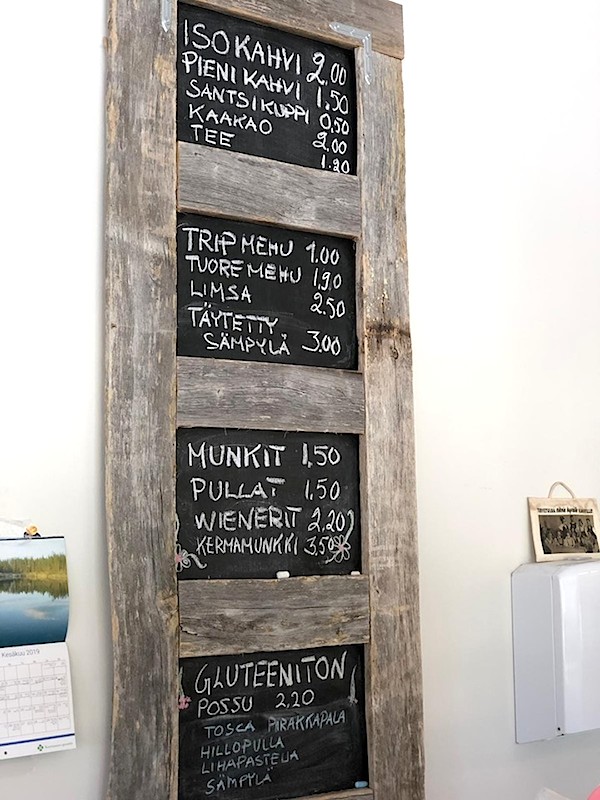 ISO KAHVI 2,00
PIENI KAHVI 1.50
SANTSIKUPPI 0,50
KAAKAO 2.00
TEE 1.20
TRIP MEHU 1.00
TUOREMEHU 1,90
LIMSA 2.50
TÄYTETTY
SÄMPYLÄ 3.00
MUNKIT 1,50
PULLAT 1,50
WIENERIT 2,20
KERMAMUNKKI 3,50
GLUTEENITON
POSSU 2,20
TOSCA PIIRAKKAPALA
HILLOPULLA
LIHAPASTEIJA
SÄMPYLÄ
Kesäkuu 2019